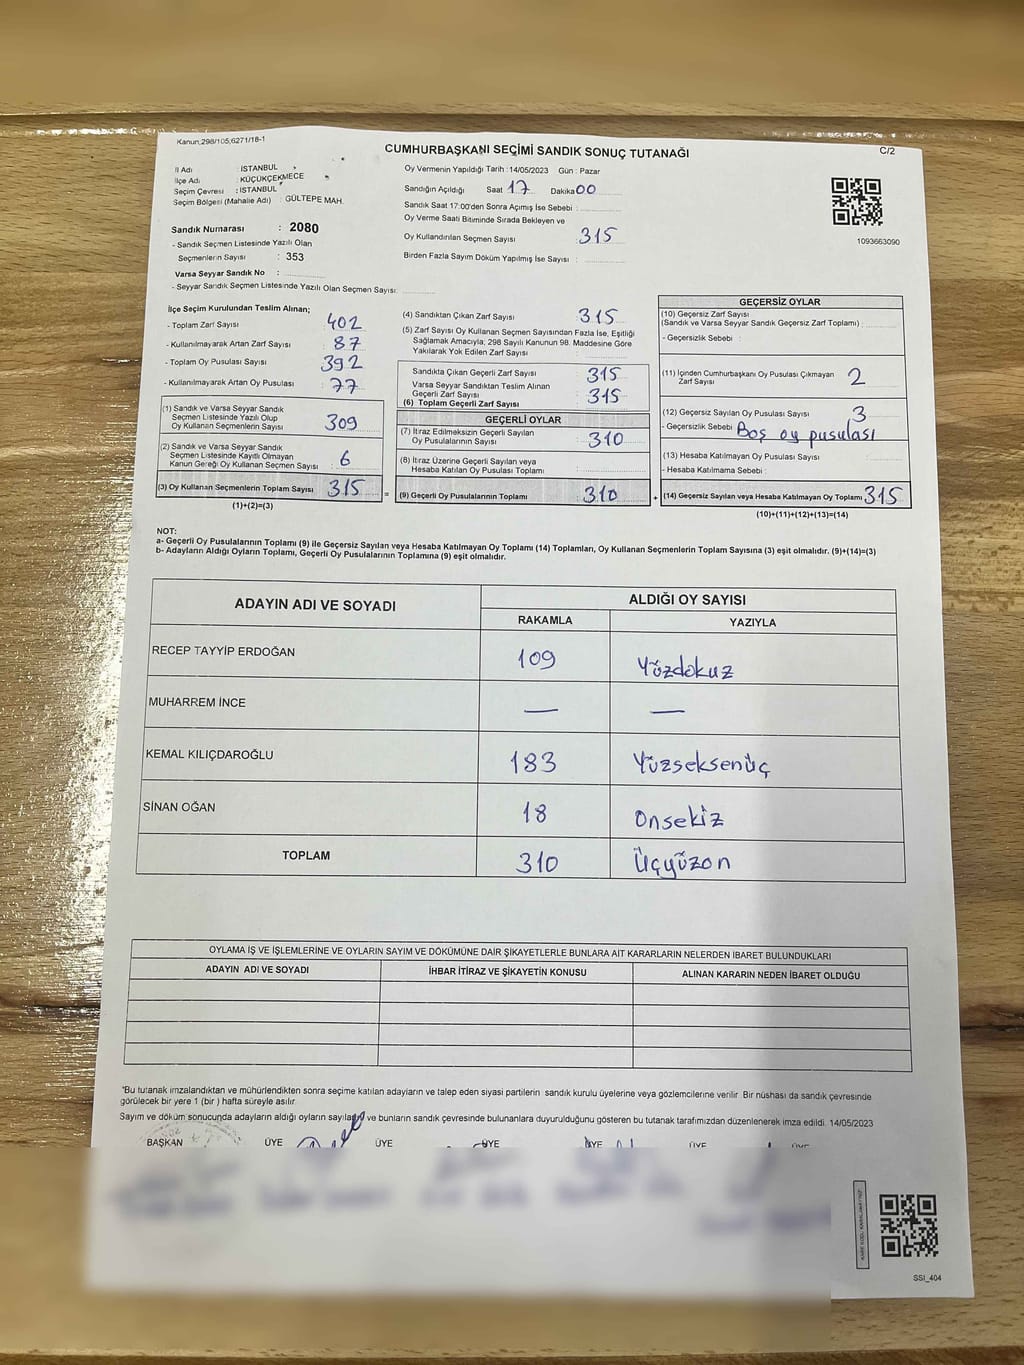 Kanun;298/105;6271/18-1
CUMHURBAŞKANI SEÇİMİ SANDIK SONUÇ TUTANAĞI
C/2
İl Adı : İSTANBUL
İlçe Adı : KÜÇÜKÇEKMECE
Seçim Çevresi : İSTANBUL
Seçim Bölgesi (Mahalle Adı) : GÜLTEPE MAH.
Sandık Numarası : 2080
- Sandık Seçmen Listesinde Yazılı Olan
Seçmenlerin Sayısı : 353
Varsa Seyyar Sandık No :
- Seyyar Sandık Seçmen Listesinde Yazılı Olan Seçmen Sayısı:
Oy Vermenin Yapıldığı Tarih : 14/05/2023 Gün : Pazar
Sandığın Açıldığı Saat 17 Dakika 00
Sandık Saat 17:00'den Sonra Açımış İse Sebebi :
Oy Verme Saati Bitiminde Sırada Bekleyen ve
Oy Kullandırılan Seçmen Sayısı 315
Birden Fazla Sayım Döküm Yapılmış İse Sayısı :
1093663090
İlçe Seçim Kurulundan Teslim Alınan;
- Toplam Zarf Sayısı 402
- Kullanılmayarak Artan Zarf Sayısı : 87
- Toplam Oy Pusulası Sayısı 392
- Kullanılmayarak Artan Oy Pusulası 77
(1) Sandık ve Varsa Seyyar Sandık
Seçmen Listesinde Yazılı Olup
Oy Kullanan Seçmenlerin Sayısı 309
(2) Sandık ve Varsa Seyyar Sandık
Seçmen Listesinde Kayıtlı Olmayan
Kanun Gereği Oy Kullanan Seçmen Sayısı : 6
(3) Oy Kullanan Seçmenlerin Toplam Sayısı 315
(1)+(2)=(3)
=
(4) Sandıktan Çıkan Zarf Sayısı : 315
(5) Zarf Sayısı Oy Kullanan Seçmen Sayısından Fazla İse, Eşitliği
Sağlamak Amacıyla; 298 Sayılı Kanunun 98. Maddesine Göre
Yakılarak Yok Edilen Zarf Sayısı
Sandıkta Çıkan Geçerli Zarf Sayısı : 315
Varsa Seyyar Sandıktan Teslim Alınan
Geçerli Zarf Sayısı : 315
(6) Toplam Geçerli Zarf Sayısı
GEÇERLİ OYLAR
(7) İtiraz Edilmeksizin Geçerli Sayılan
Oy Pusulalarının Sayısı : 310
(8) İtiraz Üzerine Geçerli Sayılan veya
Hesaba Katılan Oy Pusulası Toplamı
(9) Geçerli Oy Pusulalarının Toplamı : 310
+
GEÇERSİZ OYLAR
(10) Geçersiz Zarf Sayısı
(Sandık ve Varsa Seyyar Sandık Geçersiz Zarf Toplamı) :
- Geçersizlik Sebebi :
(11) İçinden Cumhurbaşkanı Oy Pusulası Çıkmayan
Zarf Sayısı 2
(12) Geçersiz Sayılan Oy Pusulası Sayısı : 3
- Geçersizlik Sebebi Boş oy pusulası
(13) Hesaba Katılmayan Oy Pusulası Sayısı :
- Hesaba Katılmama Sebebi :
(14) Geçersiz Sayılan veya Hesaba Katılmayan Oy Toplamı 315
(10)+(11)+(12)+(13)=(14)
NOT:
a- Geçerli Oy Pusulalarının Toplamı (9) ile Geçersiz Sayılan veya Hesaba Katılmayan Oy Toplamı (14) Toplamları, Oy Kullanan Seçmenlerin Toplam Sayısına (3) eşit olmalıdır. (9)+(14)=(3)
b- Adayların Aldığı Oyların Toplamı, Geçerli Oy Pusulalarının Toplamına (9) eşit olmalıdır.
ADAYIN ADI VE SOYADI
ALDIĞI OY SAYISI
RAKAMLA YAZIYLA
RECEP TAYYİP ERDOĞAN 109 Yüzdokuz
MUHARREM İNCE — —
KEMAL KILIÇDAROĞLU 183 Yüzseksenüç
SİNAN OĞAN 18 Onsekiz
TOPLAM 310 Üçyüzon
OYLAMA İŞ VE İŞLEMLERİNE VE OYLARIN SAYIM VE DÖKÜMÜNE DAİR ŞİKAYETLERLE BUNLARA AİT KARARLARIN NELERDEN İBARET BULUNDUKLARI
ADAYIN ADI VE SOYADI İHBAR İTİRAZ VE ŞİKAYETİN KONUSU ALINAN KARARIN NEDEN İBARET OLDUĞU
*Bu tutanak imzalandıktan ve mühürlendikten sonra seçime katılan adayların ve talep eden siyasi partilerin sandık kurulu üyelerine veya gözlemcilerine verilir. Bir nüshası da sandık çevresinde
görülecek bir yere 1 (bir) hafta süreyle asılır.
Sayım ve döküm sonucunda adayların aldığı oyların sayıları ve bunların sandık çevresinde bulunanlara duyurulduğunu gösteren bu tutanak tarafımızdan düzenlenerek imza edildi. 14/05/2023
BAŞKAN ÜYE ÜYE ÜYE ÜYE ÜYE ÜYE
SSI_404